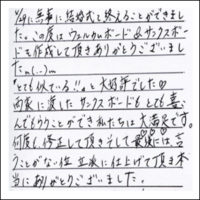 11/29に無事に結婚式を終えることができまし
た。この度はウェルカムボード&サンクスボー
ドを作成して頂きありがとうございまし
た m(..)m
"とても似ている!!"と大好評でした♡
両家に渡したサンクスボードもとても喜
んでもらうことができ私たちは大満足です。
何度も修正して頂きそして最後には言う
ことがない位立派に仕上げて頂き本
当にありがとうございました。